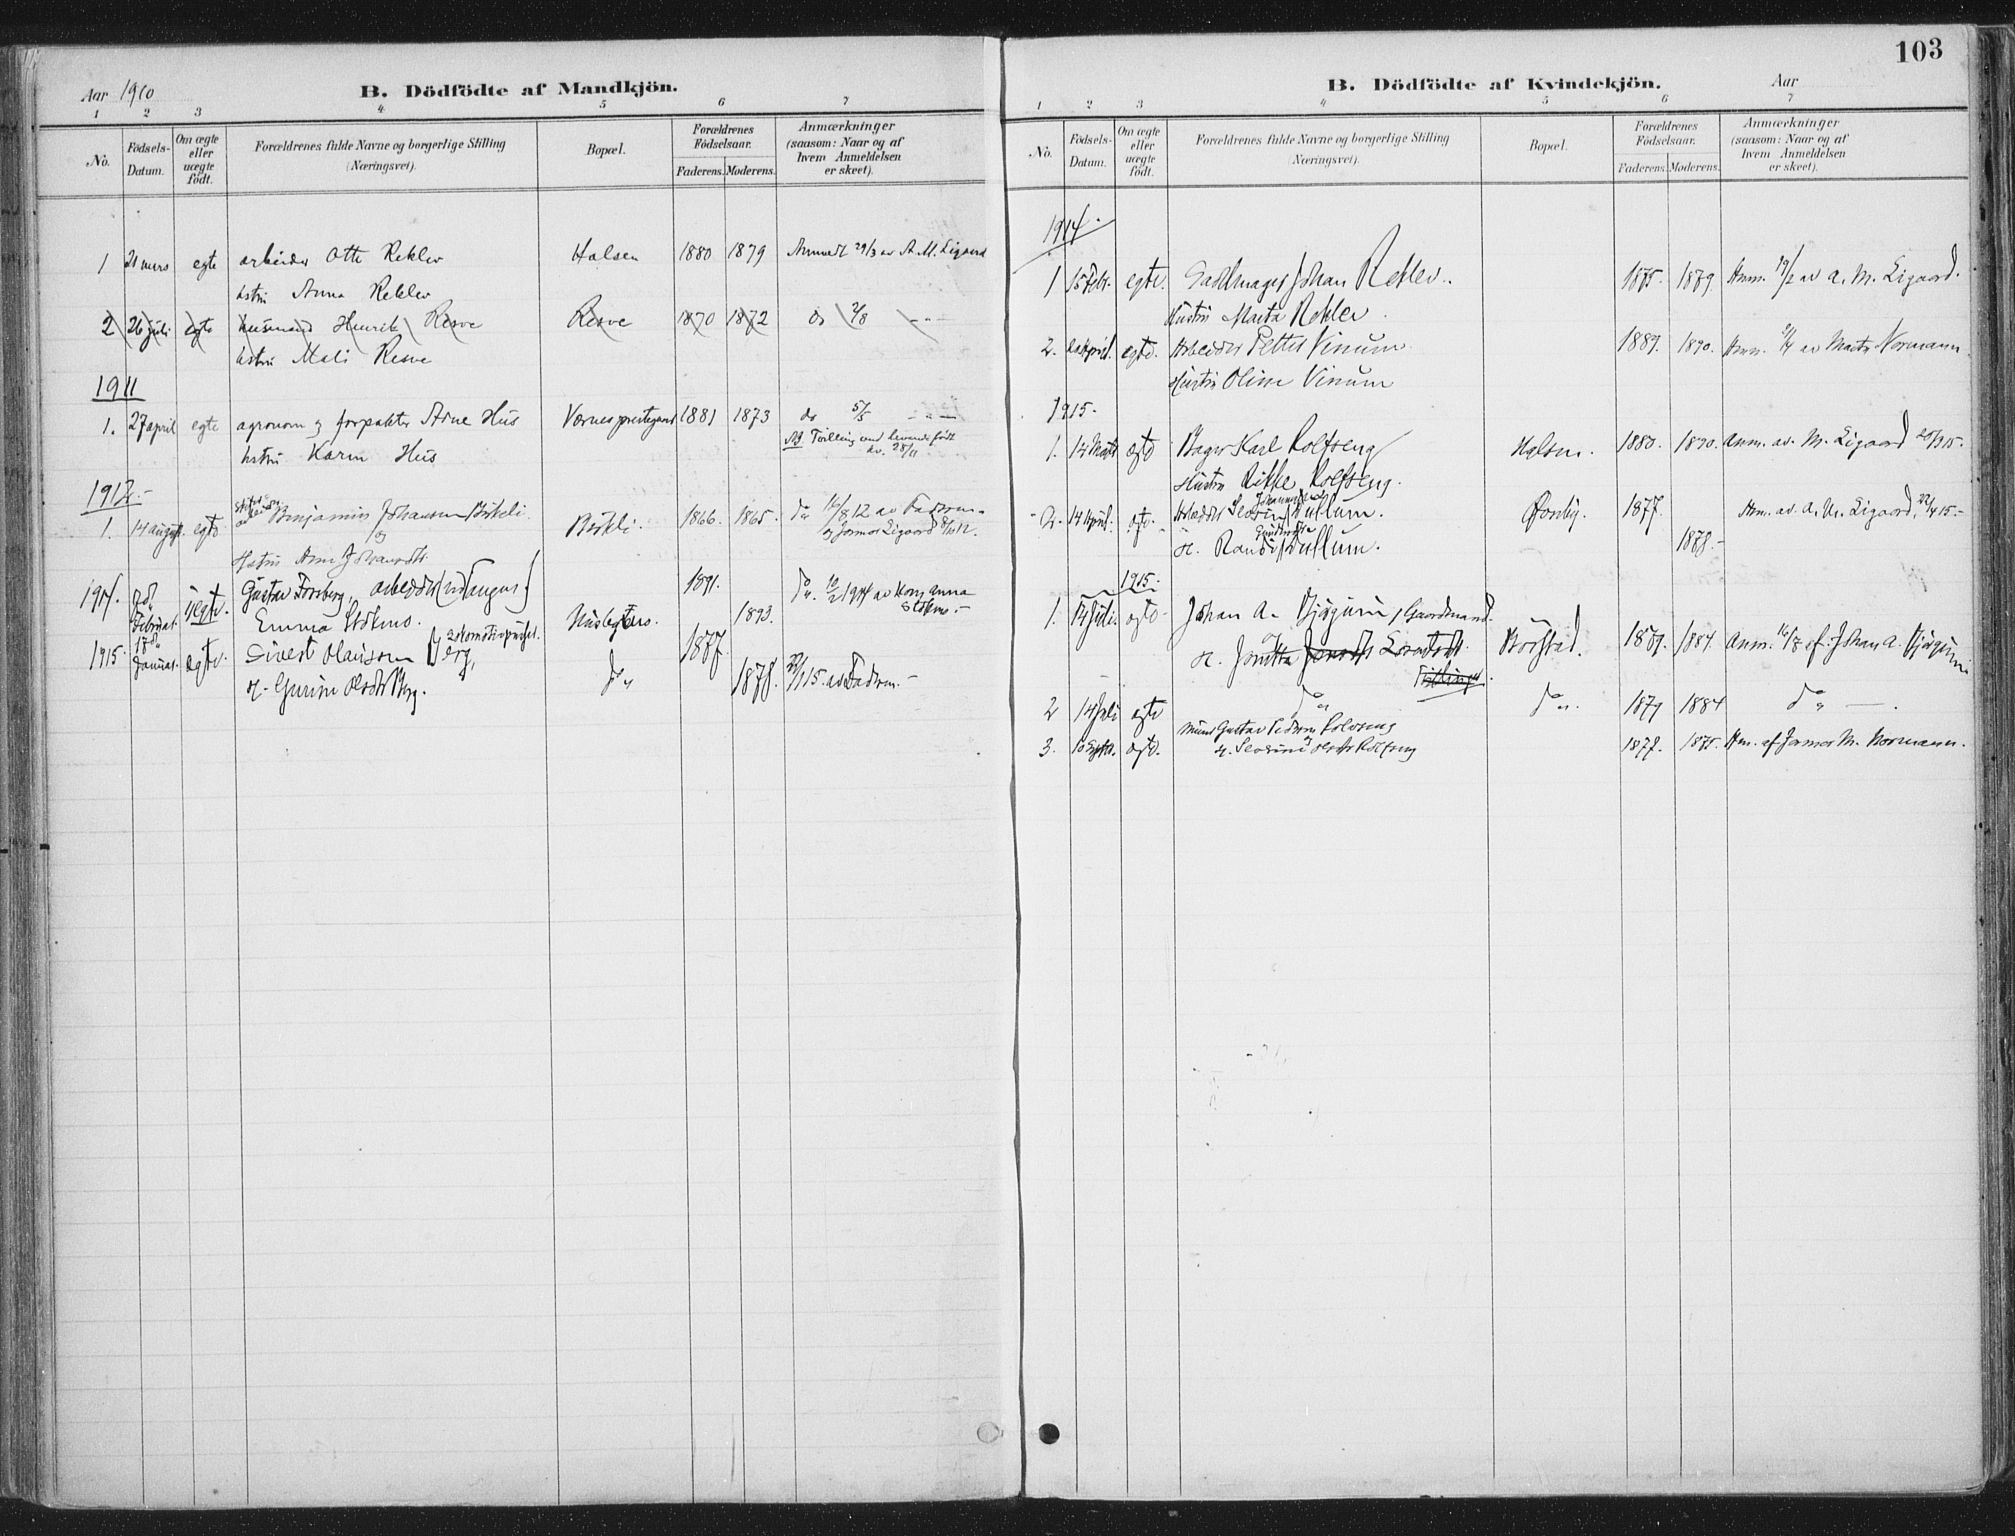 103
Aar 1910
B. Dödfödte af Mandkjön.
1 2 3 4 5 6 7
No. Födsels-Datum. Om ægte eller uægte födt. Forældrenes fulde Navne og borgerlige Stilling (Næringsvei). Bopæl. Forældrenes Födselsaar. Faderens. Moderens. Anmærkninger (saasom: Naar og af hvem Anmeldelsen er skeet).
1 21 mars egte arbeider Otto Reklev Halsen 1880 1879 Anmeldt 29/3 av A. M. Ligaard
hstru Anna Reklev
2 26 juli egte husmand Henrik Resve Resve 1870 1872 do 2/8 — " —
hstru Mali Resve
1911
1. 27 april egte agronom og forpakter Arne Hus Værnes prestegaard 1881 1873 do 5/5 — " —
hstru Karen Hus NB Tvilling med levende födt
av. 28/11
1912.-
1. 14 august egte Benjamin Johansen Birkeli Birkeli 1866. 1865. do 16/8 12 av Faderen
og Jormor Ligaard
Hstru
1914. 7de Februar. Uegte. Gustav Forsberg, arbeider 1891. do 10/2 1914 av Kone Anna
Emma Stokmo. Husbymo. 1893. Stokmo.-
1915. 17de Januar. egte. Sivert Olausson Berg, Lokomotivpudser. 1887.
H. Gurine Olsdtr Berg. do 1878. 22/1 15. av Faderen.-
B. Dödfödte af Kvindekjön.
Aar
1 2 3 4 5 6 7
No. Födsels-Datum. Om ægte eller uægte födt. Forældrenes fulde Navne og borgerlige Stilling (Næringsvei). Bopæl. Forældrenes Födselsaar. Faderens. Moderens. Anmærkninger (saasom: Naar og af hvem Anmeldelsen er skeet).
1914.
1 15 Febr. egte. Sadelmager Johan Reklev. 1875. 1879. Anm. 19/2 av A. M. Ligaard.
Hustru Marta Reklev.
2. April. egte. Arbeider Petter Vinum. 1889. 1890. Anm. av Marta Normann.
Hustru Oline Vinum
1915.
1. 14 Marts egte Bager Karl Rolfseng Halsen. 1880. 1890. Anm. av. M. Ligaard 20/3 15.
Hustru Rikke Rolfseng.
2. 14 April. egte. Arbeider Severin Johannessen Dullum. Öfonby. 1877. Anm. av. A. M. Ligaard, 22/4 15.-
H. Randi Dullum. 1878.-
1915.
1. 14 Juli. egte Johan A. Bjørgum, Gaardmand. Borstad. 1879. 1884. Anm. 16/7 af Johan A. Bjørgum
H. Jonetta
Tvillinger.
2 14 Juli egte do do 1879 1884 do " —.
3. 10 Septbr. egte. Murer Gustav Pedersen Rolfseng 1878. 1875. Anm. af Jormor M. Normann.
H. Severine Olsdtr Rolfseng